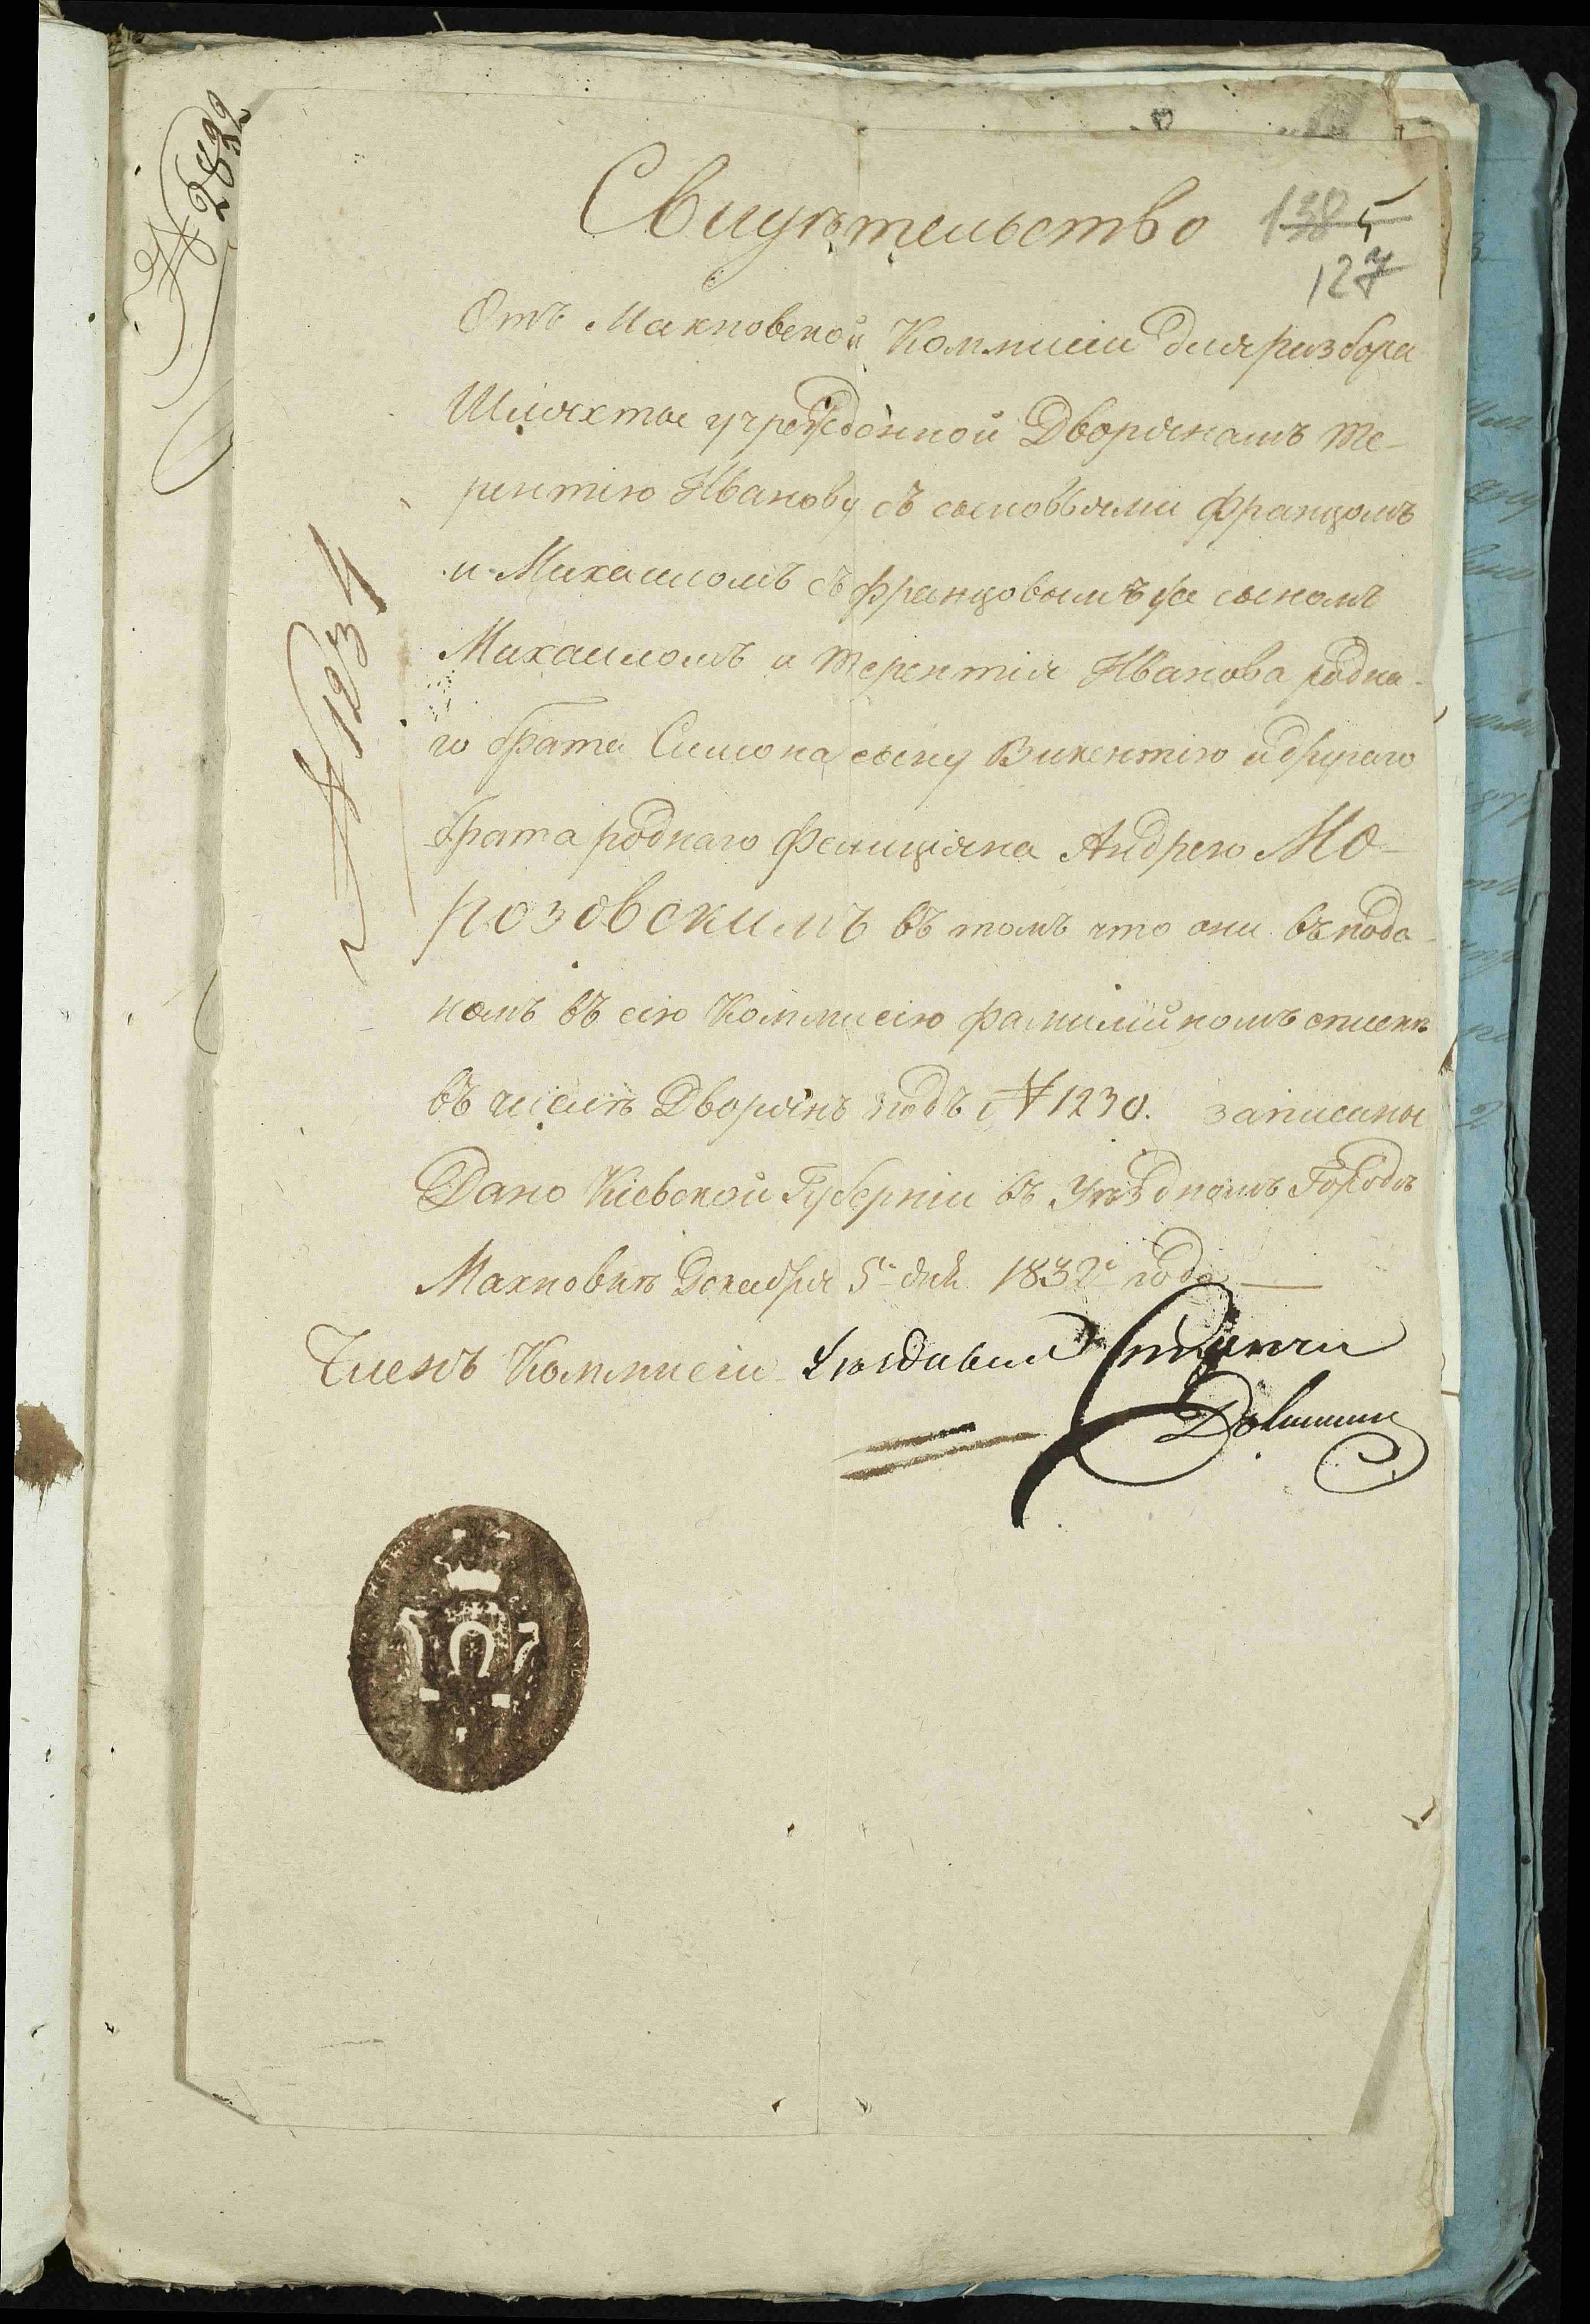 Свидѣтельство
138 5
127
№ 2832
№ 1234
Отъ Махновской Коммисіи для разбора
Шляхты учрежденной Дворянамъ Те-
рентію Иванову съ сыновьями Францомъ
и Михаиломъ съ Францовымъ же сыномъ
Михаиломъ и Терентія Иванова родна-
го брата Симона сыну Викентію и другаго
брата роднаго Фелиціяна Андрею Мо-
розовскимъ въ томъ что они въ пода-
номъ въ сію Коммисію фамилійномъ списке
въ числѣ Дворянъ подъ № 1230. записаны
Дано Кіевской Губерніи въ Уѣздномъ Городѣ
Махновкѣ Декабря 5го дня 1832го года
Членъ Коммисіи